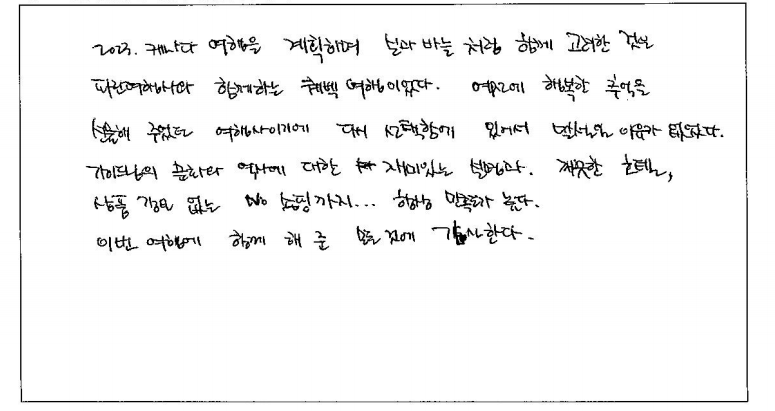 2023. 캐나다 여행을 계획하며 실과 바늘 처럼 함께 고려한 것은
파란여행사와 함께하는 퀘벡 여행이었다. 예전에 행복한 추억을
선물해 주었던 여행사이기에 다시 선택함에 있어서 망설일 이유가 없었다.
가이드님의 문화와 역사에 대한 재미있는 설명과. 깨끗한 호텔,
상품 강요 없는 No 쇼핑까지... 항상 만족도가 높다.
이번 여행에 함께 해 준 모든 것에 감사한다.